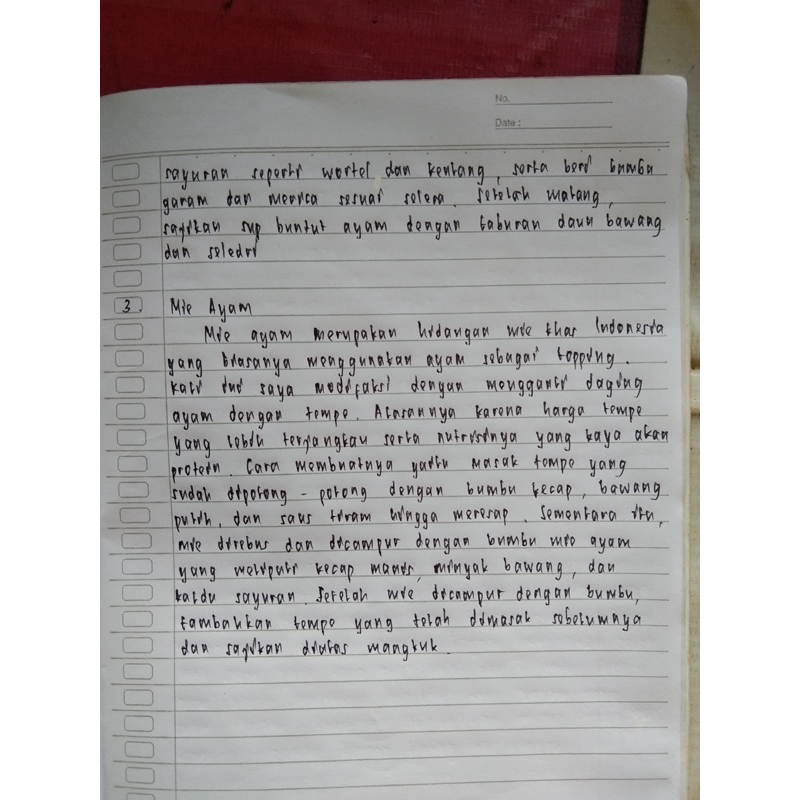 No.
Date :
sayuran seperti wortel dan kentang, serta beri bumbu
garam dan merica sesuai selera. Setelah matang,
sajikan sup buntut ayam dengan taburan daun bawang
dan seledri
3. Mie Ayam
Mie ayam merupakan hidangan mie khas Indonesia
yang biasanya menggunakan ayam sebagai topping.
Kali ini saya modifikasi dengan mengganti daging
ayam dengan tempe. Alasannya karena harga tempe
yang lebih terjangkau serta nutrisinya yang kaya akan
protein. Cara membuatnya yaitu masak tempe yang
sudah dipotong-potong dengan bumbu kecap, bawang
putih, dan saus tiram hingga meresap. Sementara itu,
mie direbus dan dicampur dengan bumbu mie ayam
yang meliputi kecap manis, minyak bawang, dan
kaldu sayuran. Setelah mie dicampur dengan bumbu,
tambahkan tempe yang telah dimasak sebelumnya
dan sajikan diatas mangkuk.